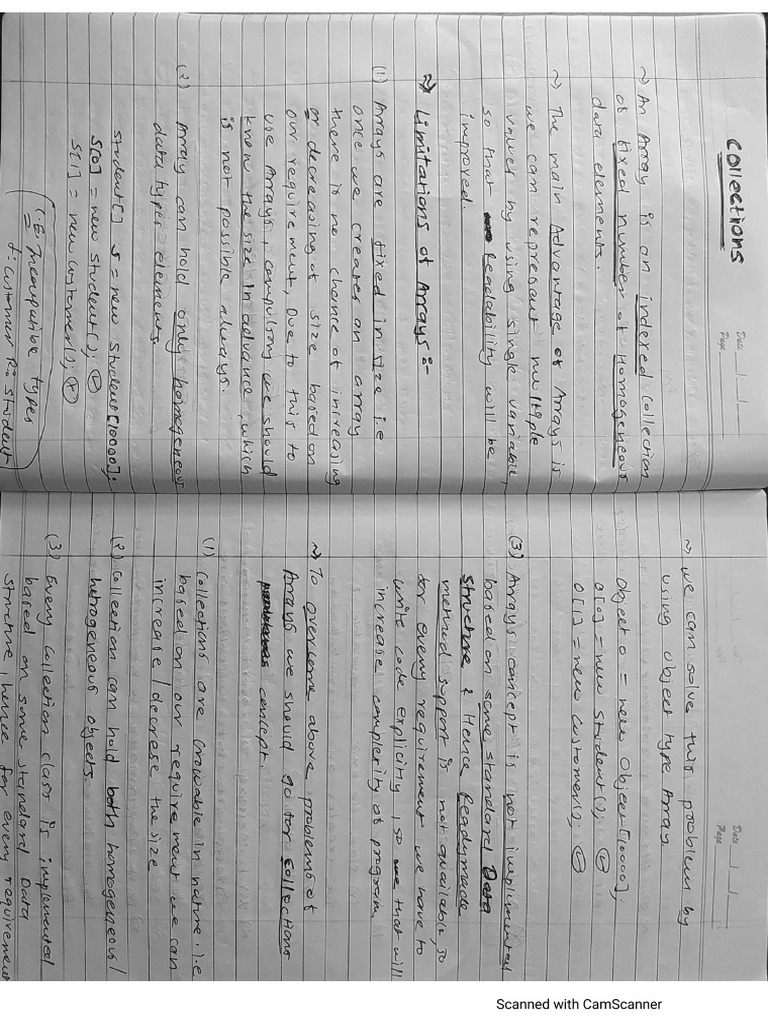 Collections
Date
Page
~) An Array is an indexed collection
of fixed number of Homogeneous
data elements.
~) The main Advantage of Arrays is
we can represant multiple
values by using single variable,
so that Readability will be
improved
~) Limitations of Arrays :-
(1) Arrays are fixed in size i.e
once we creates an array
there is no chance of increasing
or decreasing of size based on
our requirement, Due to this to
use Arrays, compulsory we should
know the size in advance, which
is not possible always.
(2) Array can hold only homogeneous
data types elements.
student[] s = new student[10000];
s[0] = new student();
s[1] = new customer();
C.E: Incompatible types
f: customer R: student
Date
Page
~) we can solve this problem by
using object type Array
Object o = new Object[10000];
o[0] = new student();
o[1] = new customer();
(3) Arrays concept is not implemented
based on some standard Data
structure & Hence Readymade
method support is not available, so
for every requirement we have to
write code explicitly, so that will
increase complexity of program
~) To overcome above problems of
Arrays we should go for collections
concept.
(1) Collections are Growable in nature. i.e
based on our requirement we can
increase / decrese the size
(2) Collection can hold both homogeneous /
hetrogeneous objects.
(3) Every collection class is implemented
based on some standard Data
structure, hence for every requirement
Scanned with CamScanner